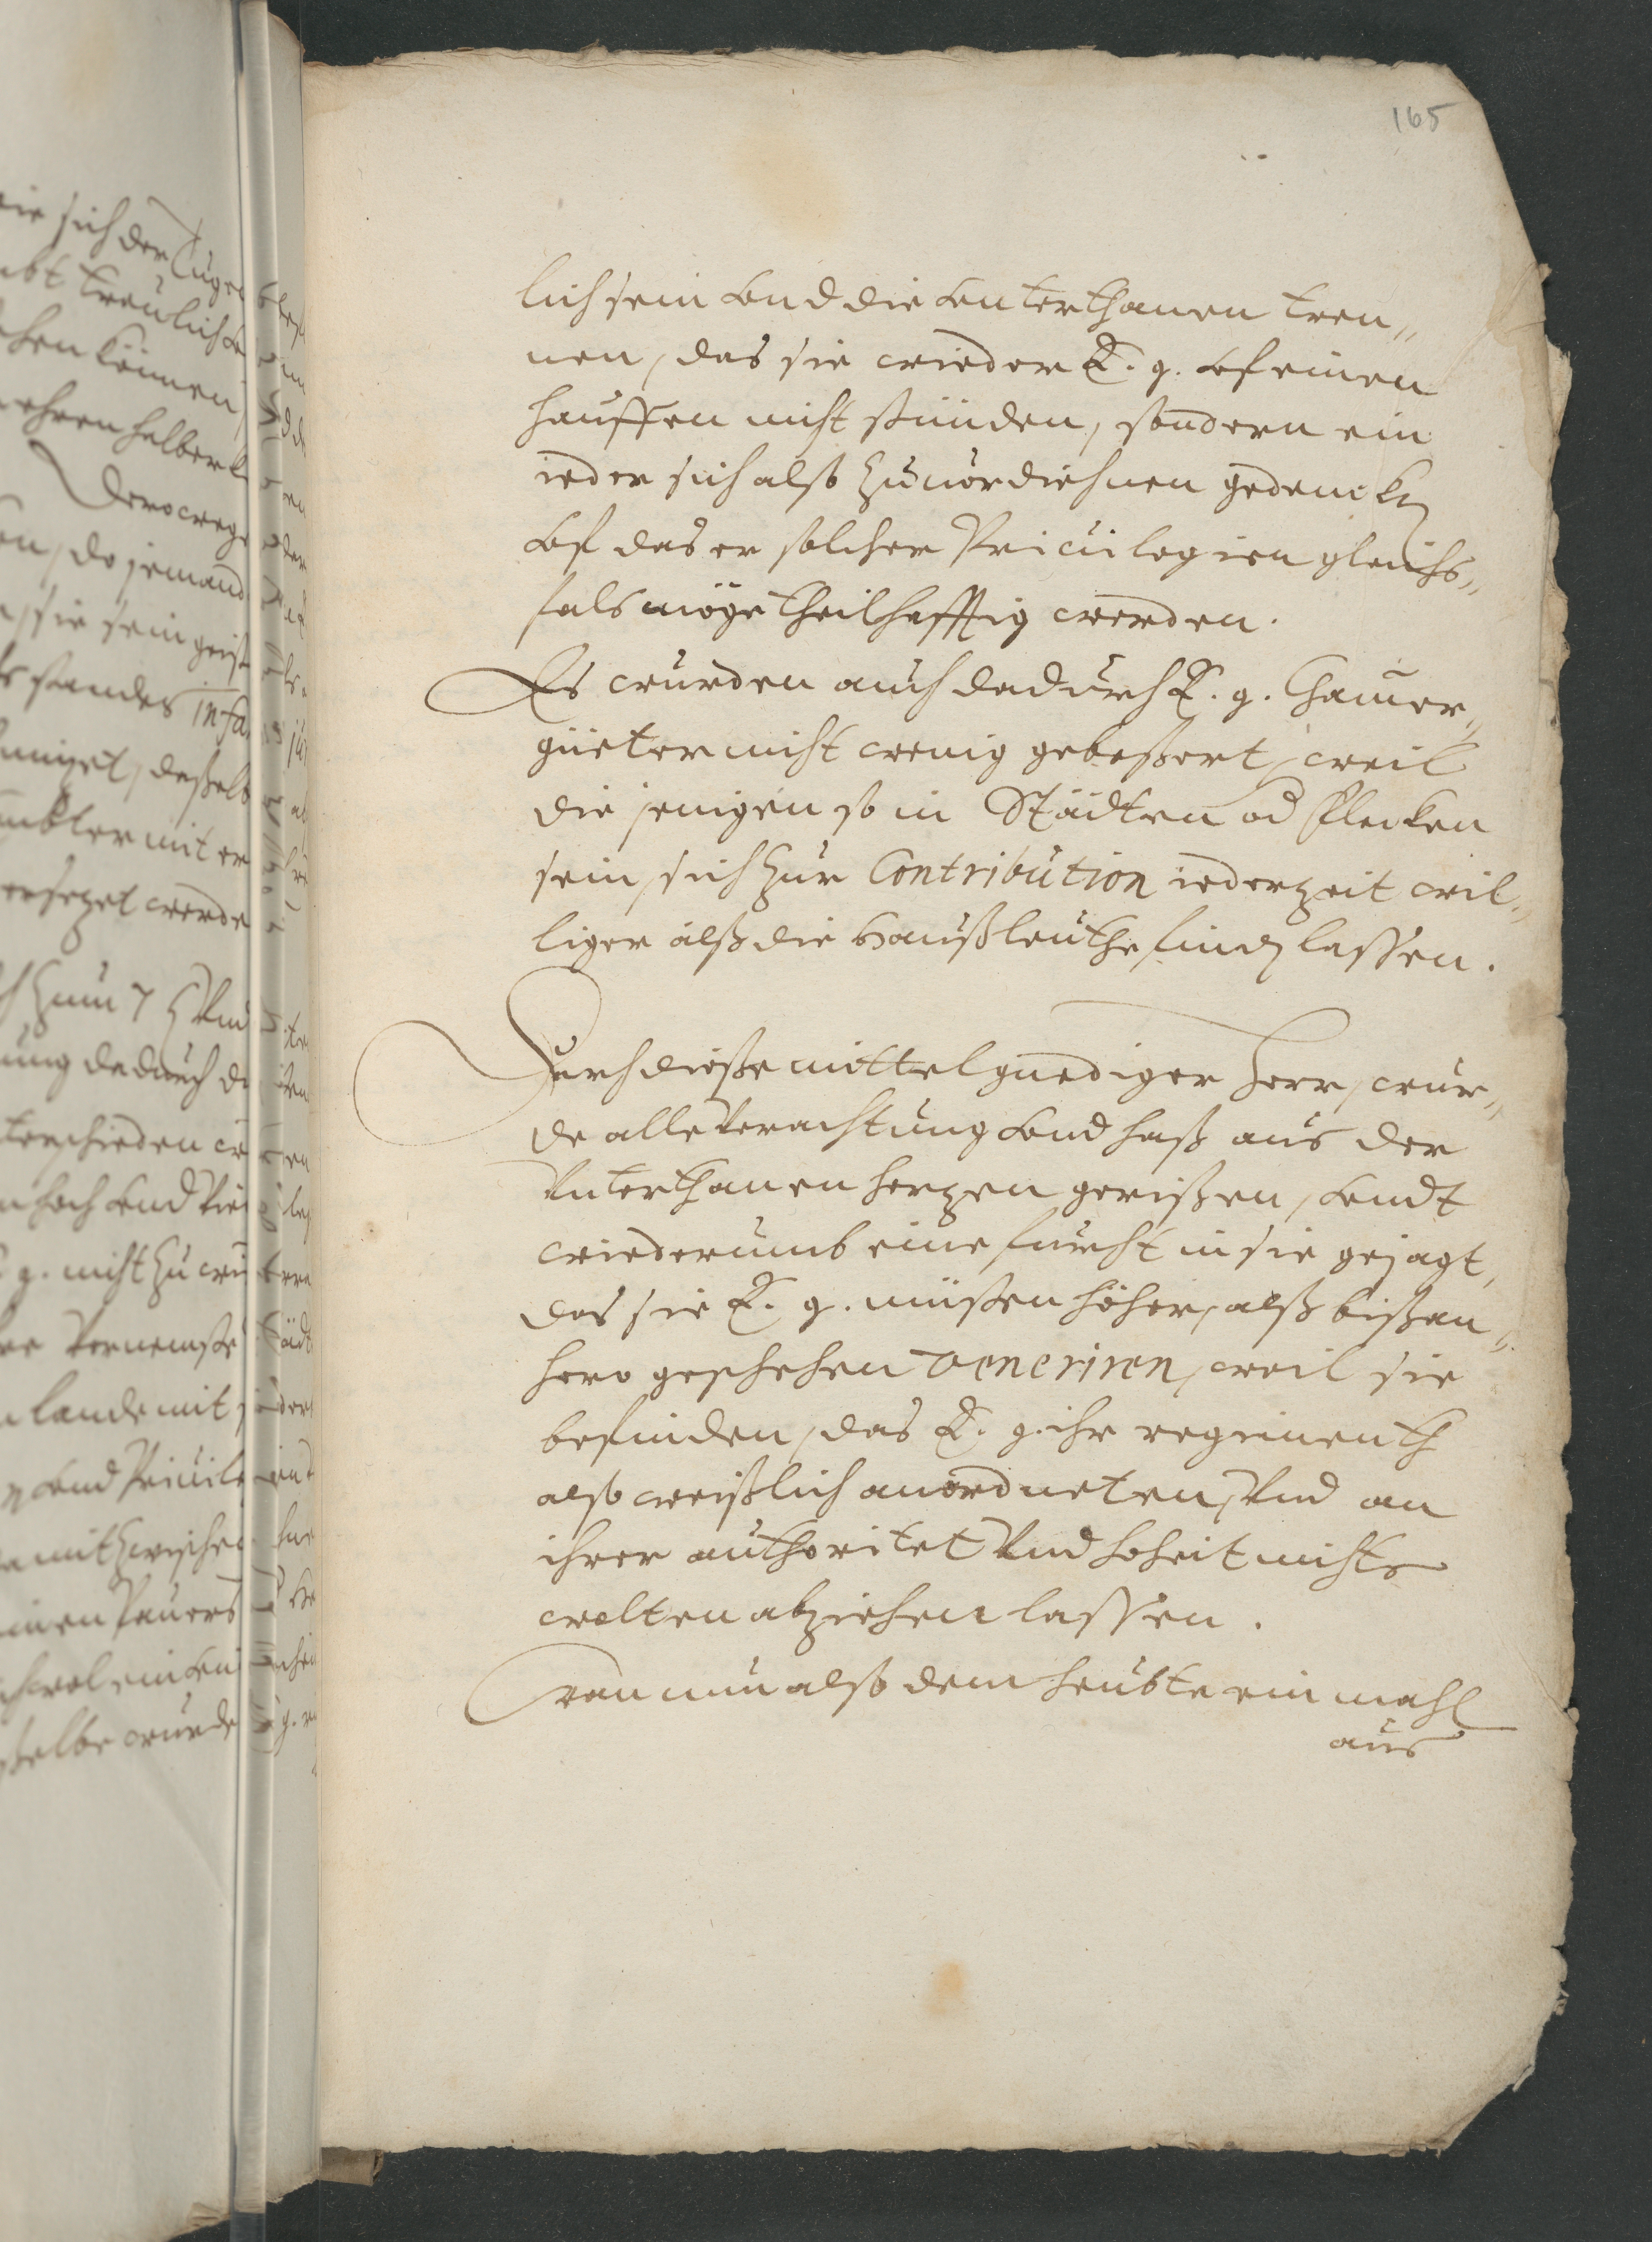 165
lich sein vnd die vnterthanen tren„
nen, das sie wieder E. g. vf einen
hauffen nicht stünden, sondern ein
ieder sich also zuuordiehnen gedencken
vf das er solcher Priuilegien gleichs„
fals möge theilhafftig werden.
Es wurden auch dadurch E. g. Chamer„
güeter nicht wenig gebeßert, weil
die jenigen so in Städten od Flecken
sein, sich zur Contribution iederzeit wil„
liger alß die Haußleuthe finden lassen.
Durch dieße mittel gnediger Herr, wur„
de alle Verachtung vnd haß aus der
Vnterthanen herzen gerißen, vndt
wiederumb eine furcht in sie gejagt,
das sie E. g. müßen höher, alß bißan„
hero geschehen veneriren, weil sie
befinden, das E. g. ihr regimenth
also weißlich anordneten, Vnd an
ihrer authoritet Vnd hoheit nichts
wolten abziehen lassen.
Wan nun also dem heubte ein mahl
aus